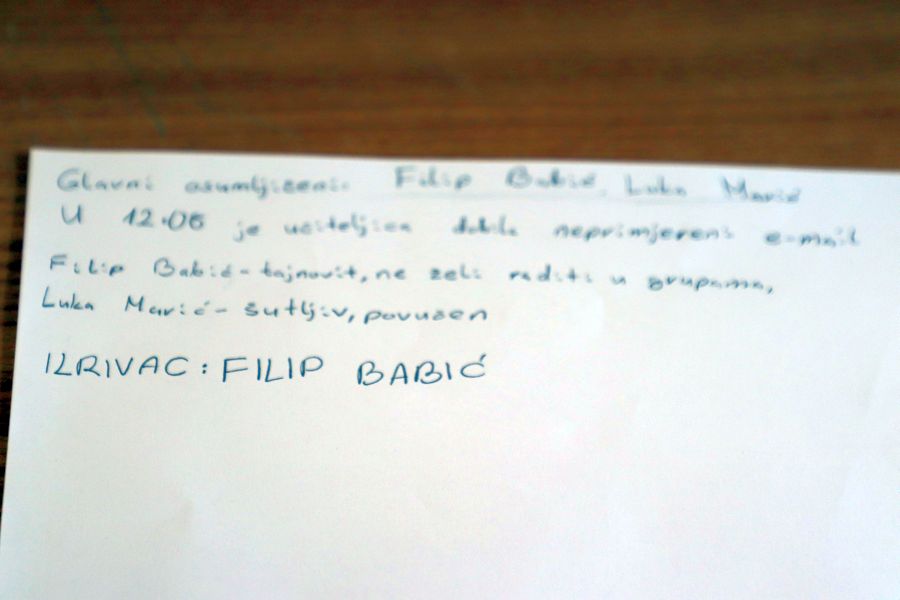 Glavni osumljiceni: Filip Babić, Luka Marić
U 12.06 je uciteljica dobila neprimjereni e-mail
Filip Babić - tajnovit, ne zeli raditi u grupama,
Luka Marić - šutljiv, povucen
IZRIVAC: FILIP BABIĆ